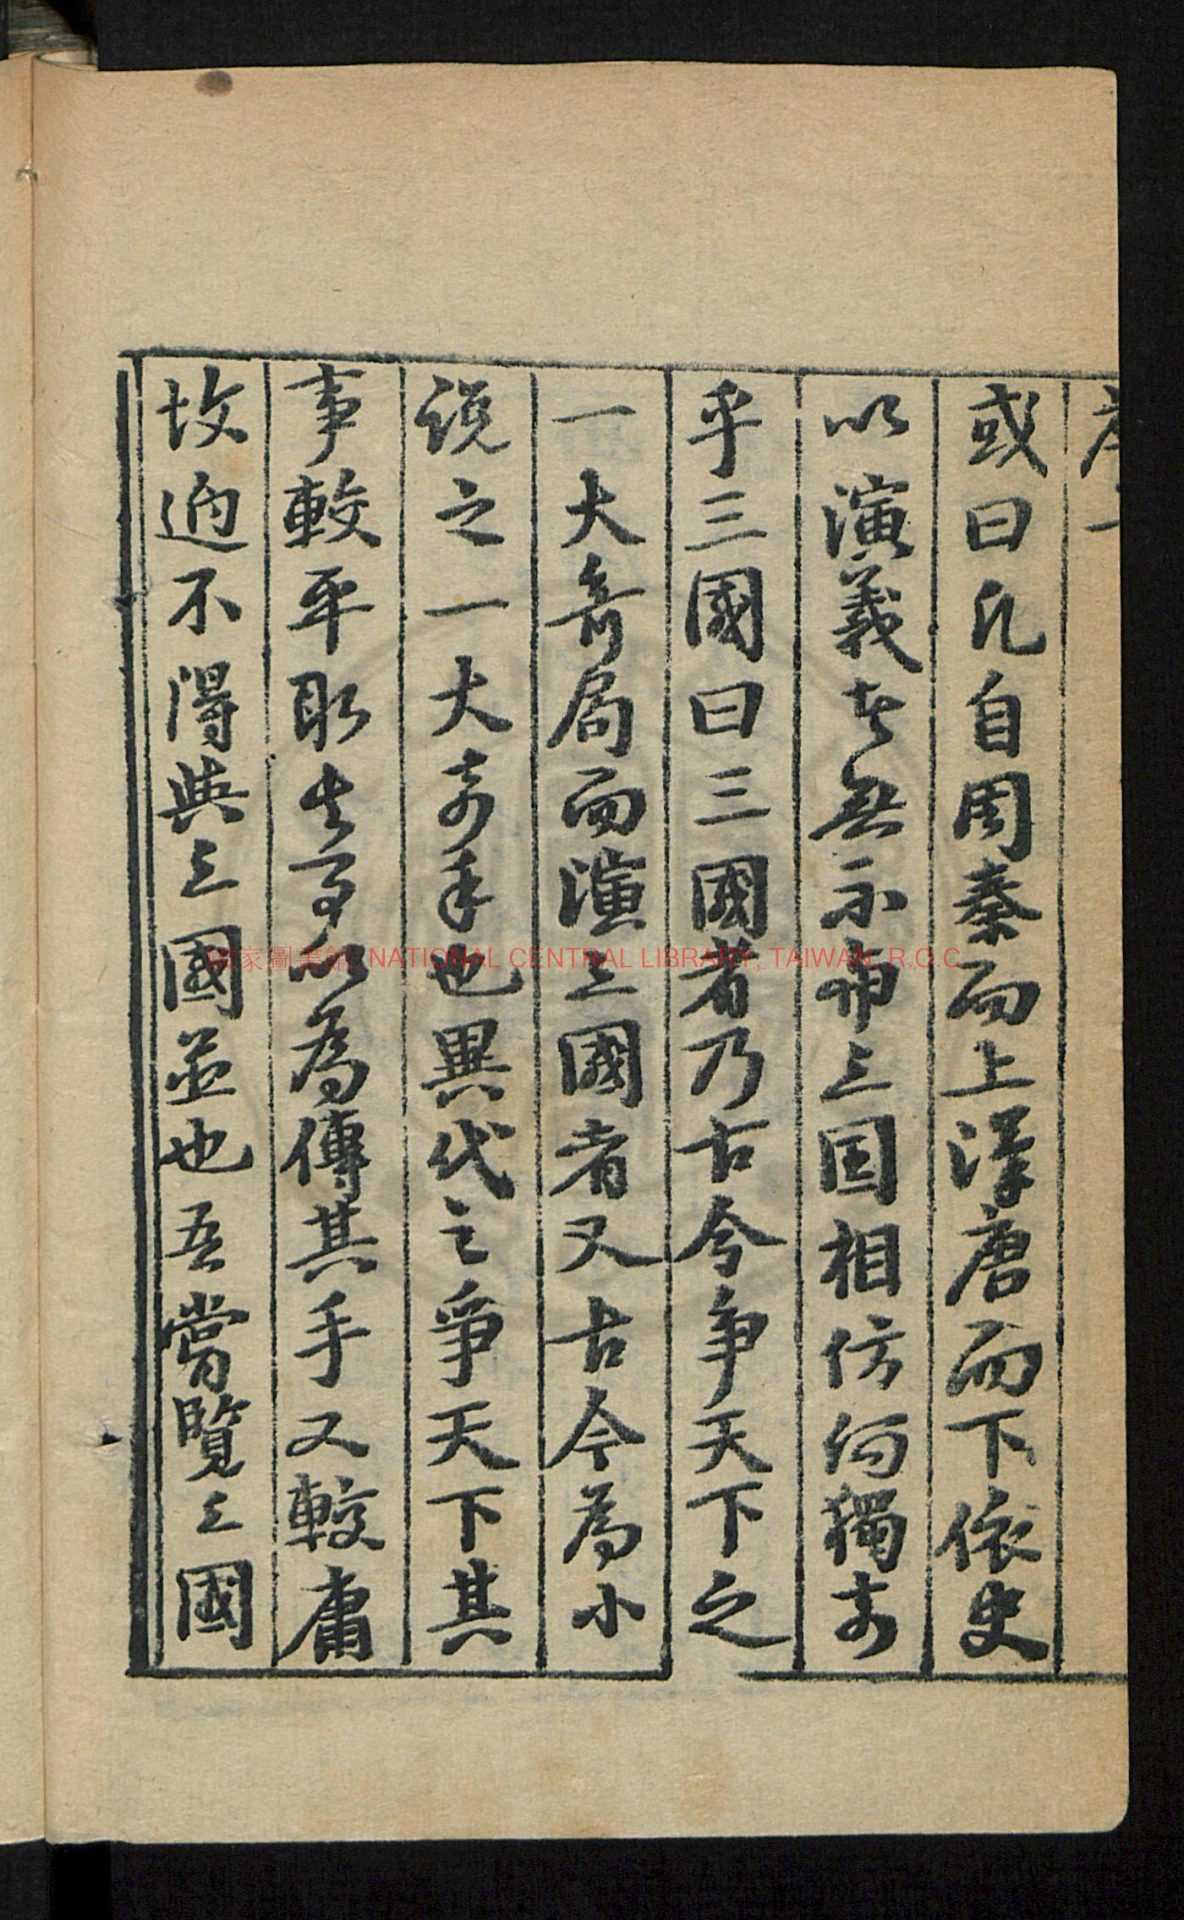 或曰凡自周秦而上漢唐而下依史
以演義者無不與三国相仿何獨奇
乎三國曰三國者乃古今爭天下之
一大奇局而演三國者又古今為小
說之一大奇手也異代之爭天下其
事較平取其事以為傳其手又較庸
故迥不得與三國並也吾嘗覽三國
國家圖書館 NATIONAL CENTRAL LIBRARY, TAIWAN, R.O.C